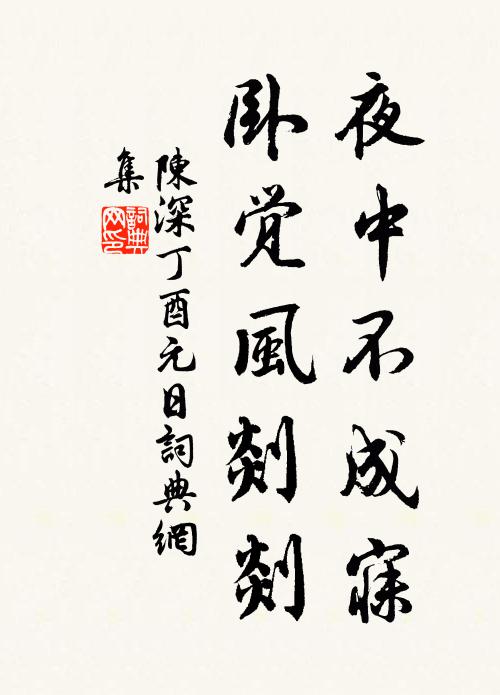 夜中不成寐
卧觉風剡剡
陳深丁酉元日詞典網
集
詞典
网印